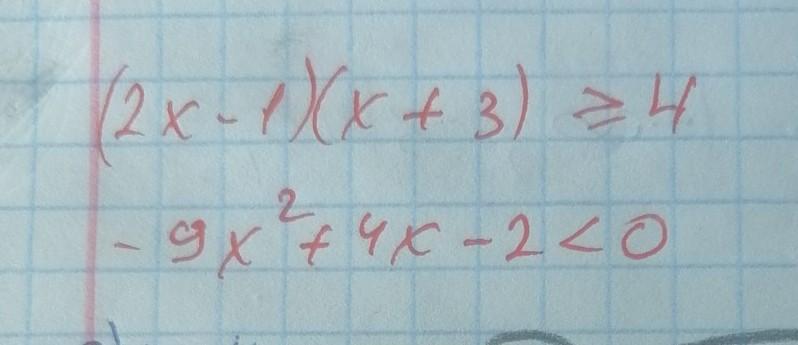 (2x-1)(x+3) ≥ 4
-9x²+4x-2<0